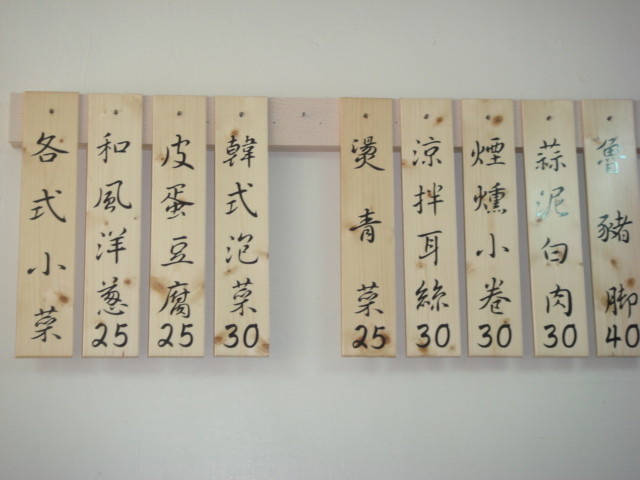 各式小菜
和風洋蔥25
皮蛋豆腐25
韓式泡菜30
燙青菜25
涼拌耳絲30
煙燻小卷30
蒜泥白肉30
魯豬腳40